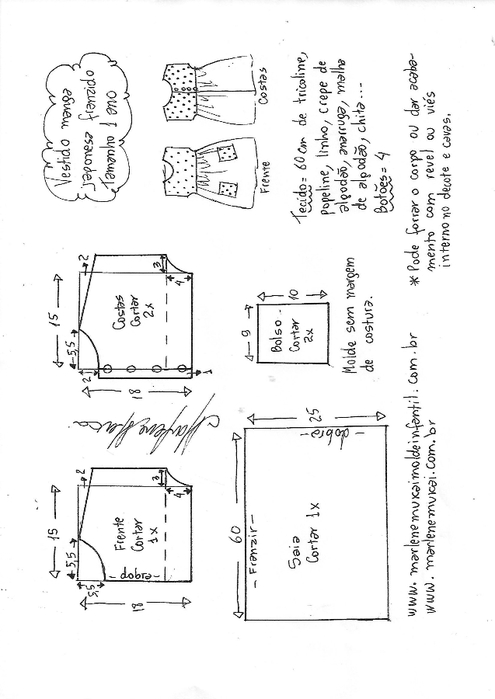 15
5,5
2
5,5
Frente
Cortar
1x
3
4
- dobra -
18
Marlene Mukai
15
5,5
2
2
Costas
Cortar
2x
3
4
1
18
Vestido manga
japonesa franzido
Tamanho 1 ano
Frente
Costas
60
- Franzir -
Saia
Cortar 1x
- dobra -
25
9
Bolso.
Cortar
2x
10
Molde sem margem
de costura.
Tecido = 60 cm de tricoline,
popeline, linho, crepe de
algodão, anarruga, malha
de algodão, chita...
Botões = 4
www.marlenemukaimoldeinfantil.com.br
www.marlenemukai.com.br
* Pode forrar o corpo ou dar acaba-
mento com revel ou viés
interno no decote e cavas.